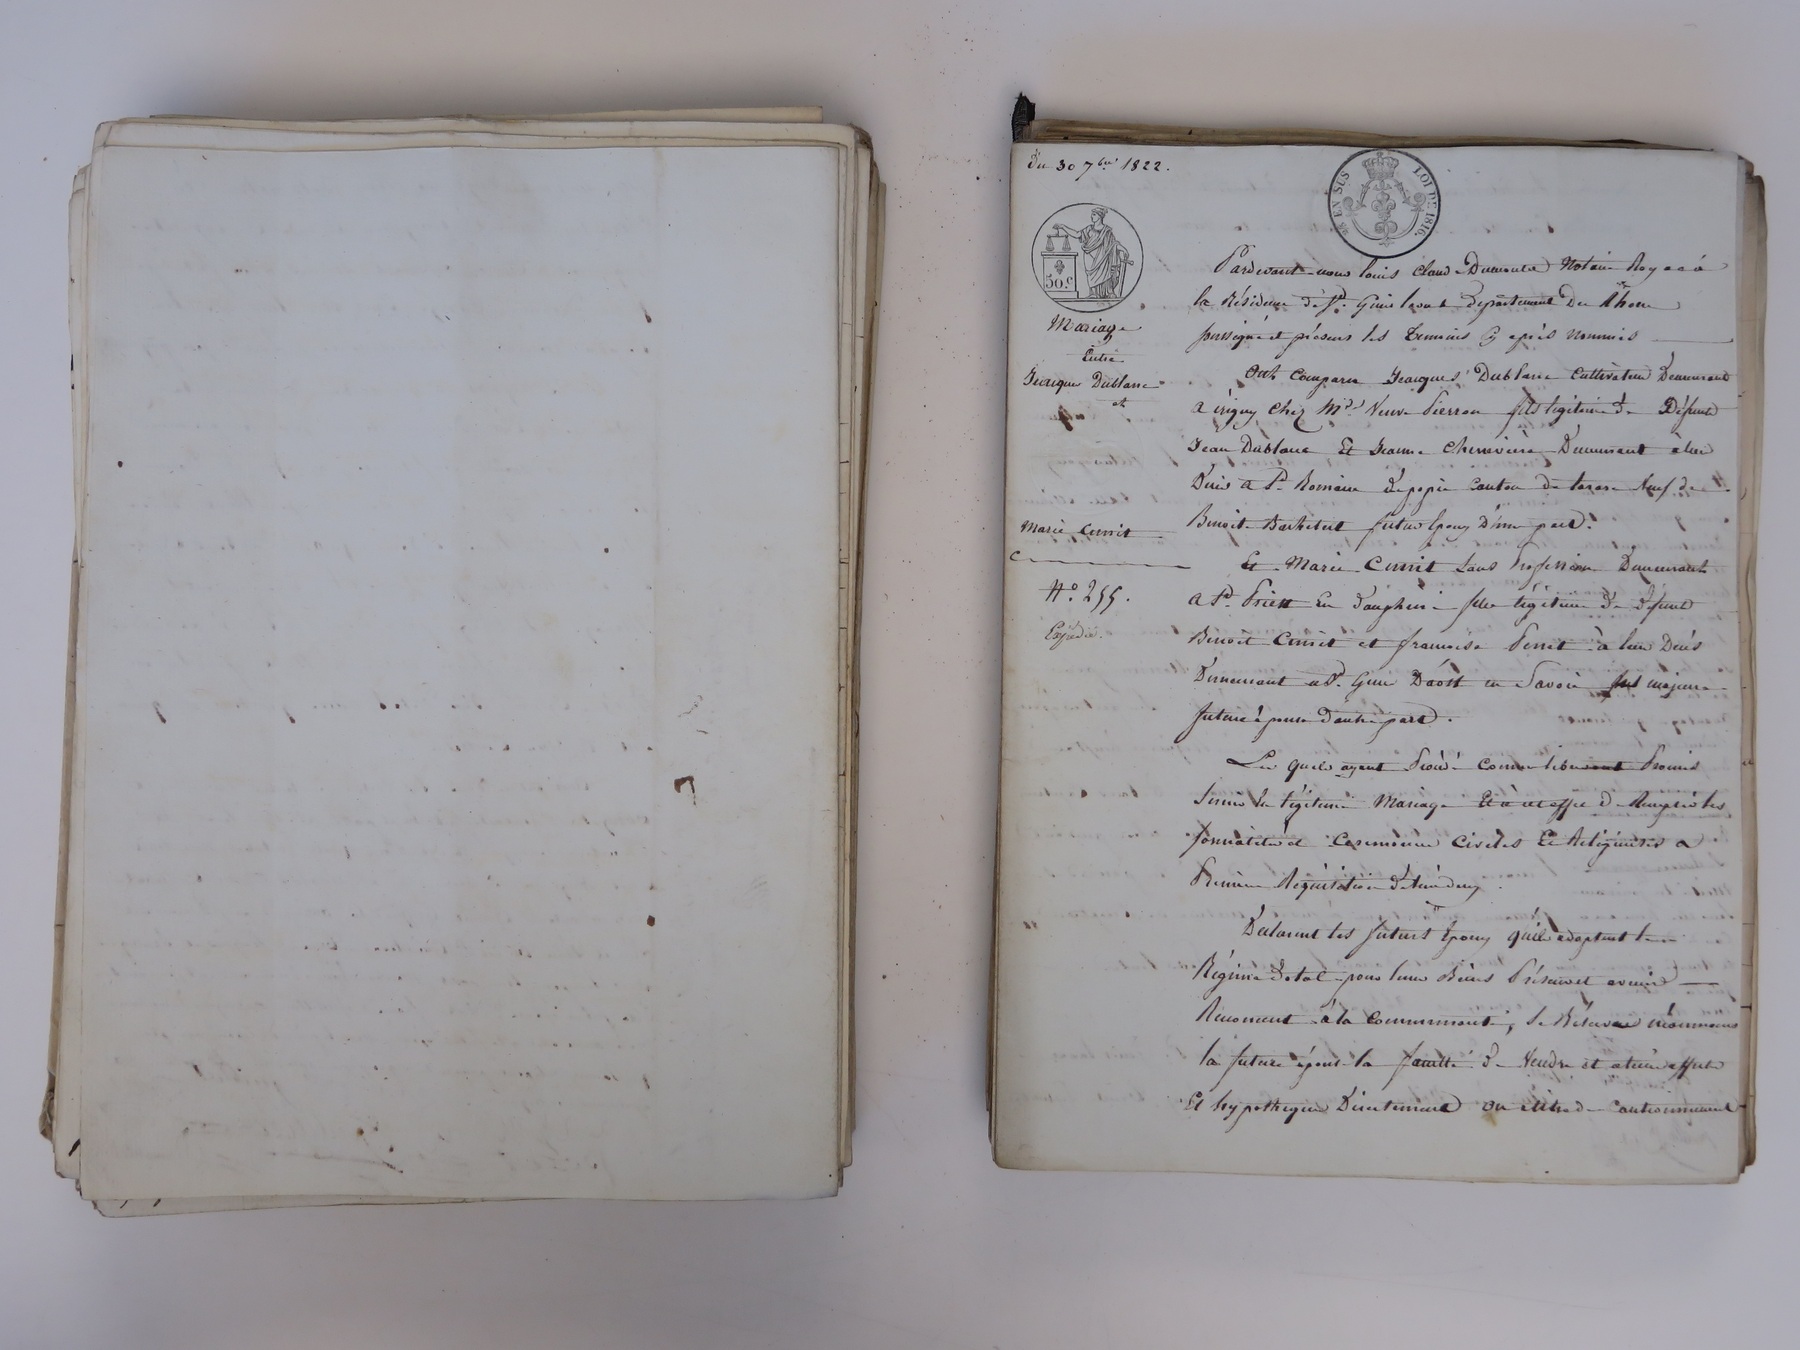 du 30 7bre 1822.
EN SUS LOI DE 1816.
50.c
Mariage
Entre
Jacques Dublanc
et
Marie Cimit
N.o 255.
Expédié.
Pardevant nous Louis Claude Notaire Royal à
la Résidence de St. Genis Laval département Du Rhône
soussigné et présens les Témoins Cy après Nommés
Ont Comparu Jacques Dublanc Cultivateur Demeurant
A irigny Chez Md. Veuve Pierron fils légitime de Défunt
Jean Dublanc Et Jeanne Chenevière Demeurant
A St. Romain de popée Canton de tarare Veuf de
Benoite futur Epoux D'une part.
Et Marie Cimit Sans Profession Demeurant
A St. Priest En Dauphiné fille légitime De Défunt
Benoit Cimit et françoise Perret à leur Décès
Demeurant a St. Genis D'aost en Savoie majeure
future épouse D'autre part.
Les quels ayant Promis
S'unir En légitime Mariage Et à cet effet de Remplir les
formalités et Cérémonies Civiles Et Religieuses a
Première Réquisition d'entr'eux.
Déclarent les futurs Epoux qu'ils adoptent le
Régime Dotal pour leurs Biens Présens et avenir
Renoncent à la Communauté, Se Réserve néanmoins
la future épouse la faculté de Vendre et
Et hypothéquer Directement ou cautionnement